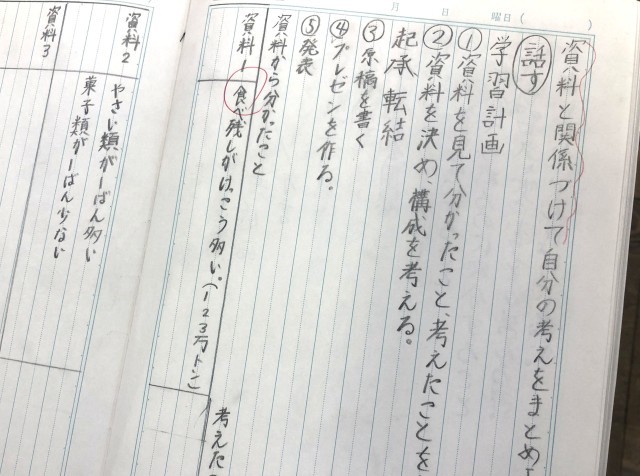 月 日 曜日( )
資料と関係づけて自分の考えをまとめ
話す
学習計画
①資料を見て分かったこと、考えたことを
②資料を決め、構成を考える。
起承転結
③原稿を書く
④プレゼンを作る。
⑤発表
資料から分かったこと
資料1 食べ残しがけっこう多い。(123万トン)
考えた
資料2 やさい類が一ばん多い
菓子類が一ばん少ない
資料3